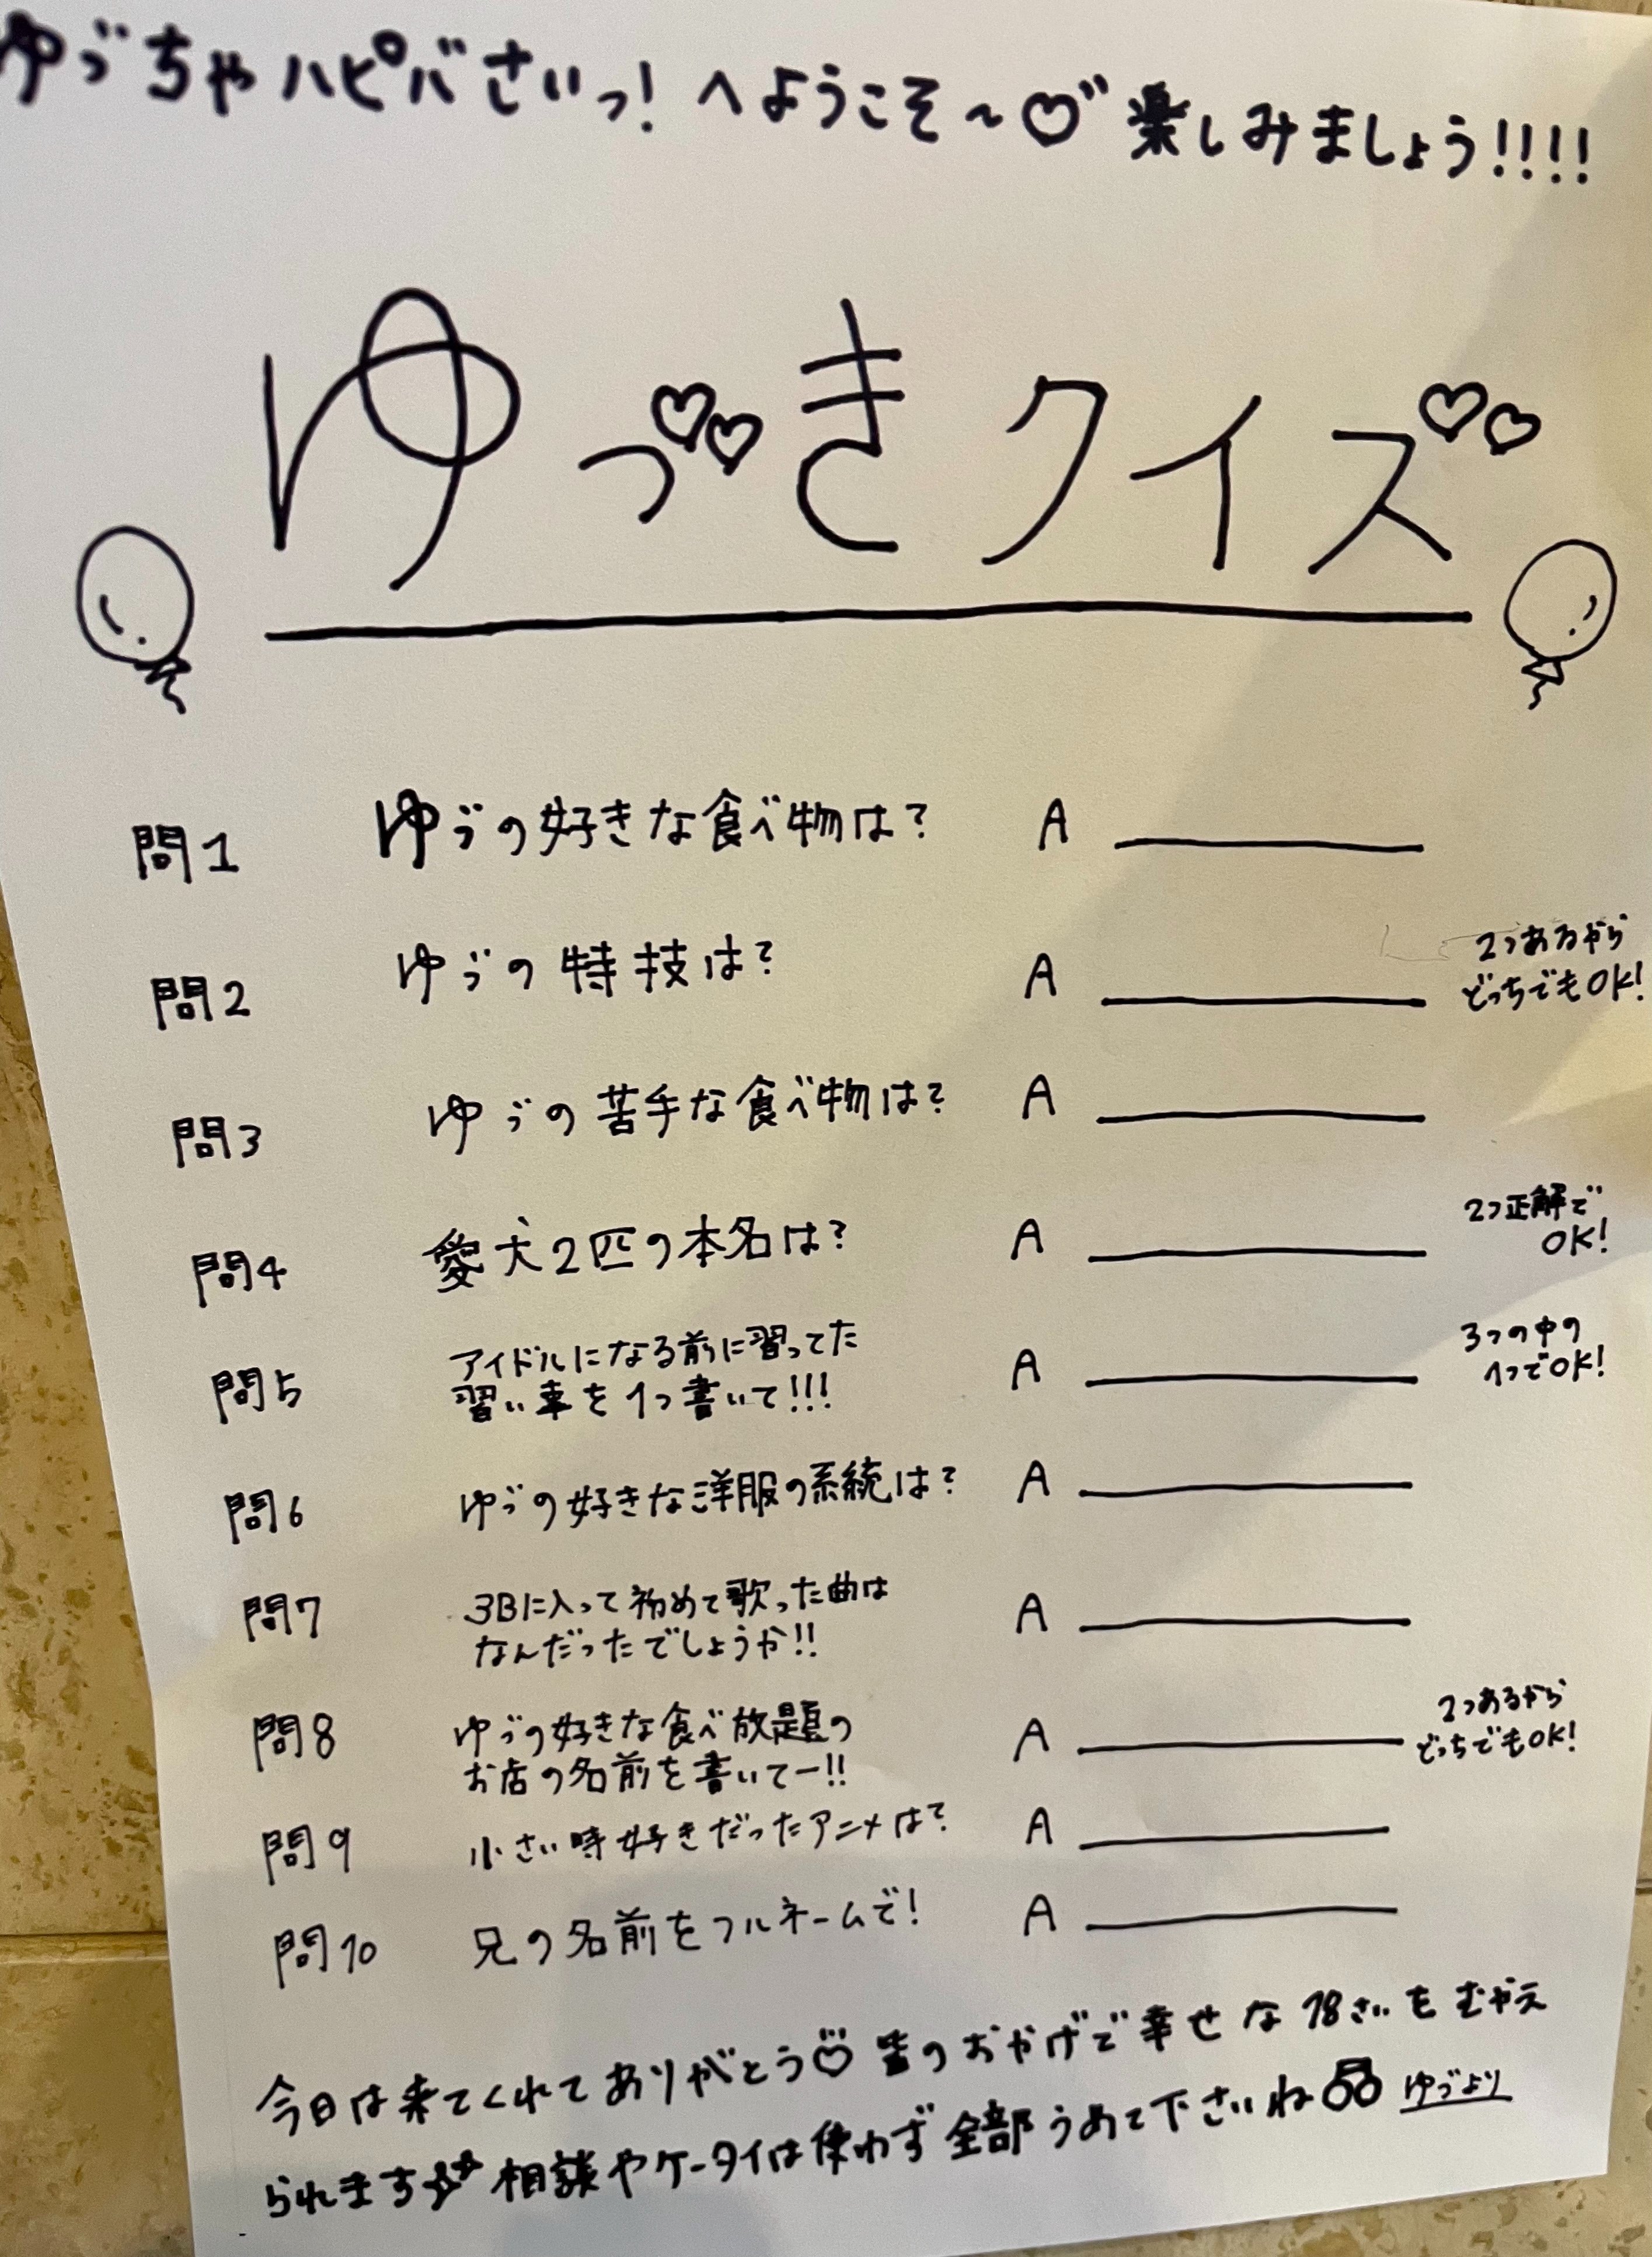 ゆづちゃハピバさいっ！へようこそ〜♡" 楽しみましょう!!!!
ゆづきクイズ
問1 ゆづの好きな食べ物は？ A
問2 ゆづの特技は？ A 2つあるからどっちでもOK!
問3 ゆづの苦手な食べ物は？ A
問4 愛犬2匹の本名は？ A 2つ正解でOK!
問5 アイドルになる前に習ってた
習い事を1つ書いて!!! A 3つの中の1つでOK!
問6 ゆづの好きな洋服の系統は？ A
問7 3Bに入って初めて歌った曲は
なんだったでしょうか!! A
問8 ゆづの好きな食べ放題の
お店の名前を書いてー!! A 2つあるからどっちでもOK!
問9 小さい時好きだったアニメは？ A
問10 兄の名前をフルネームで！ A
今日は来てくれてありがとう♡ 皆のおかげで幸せな18さいをむかえ
られます 相談やケータイは使わず全部うめて下さいね ゆづより